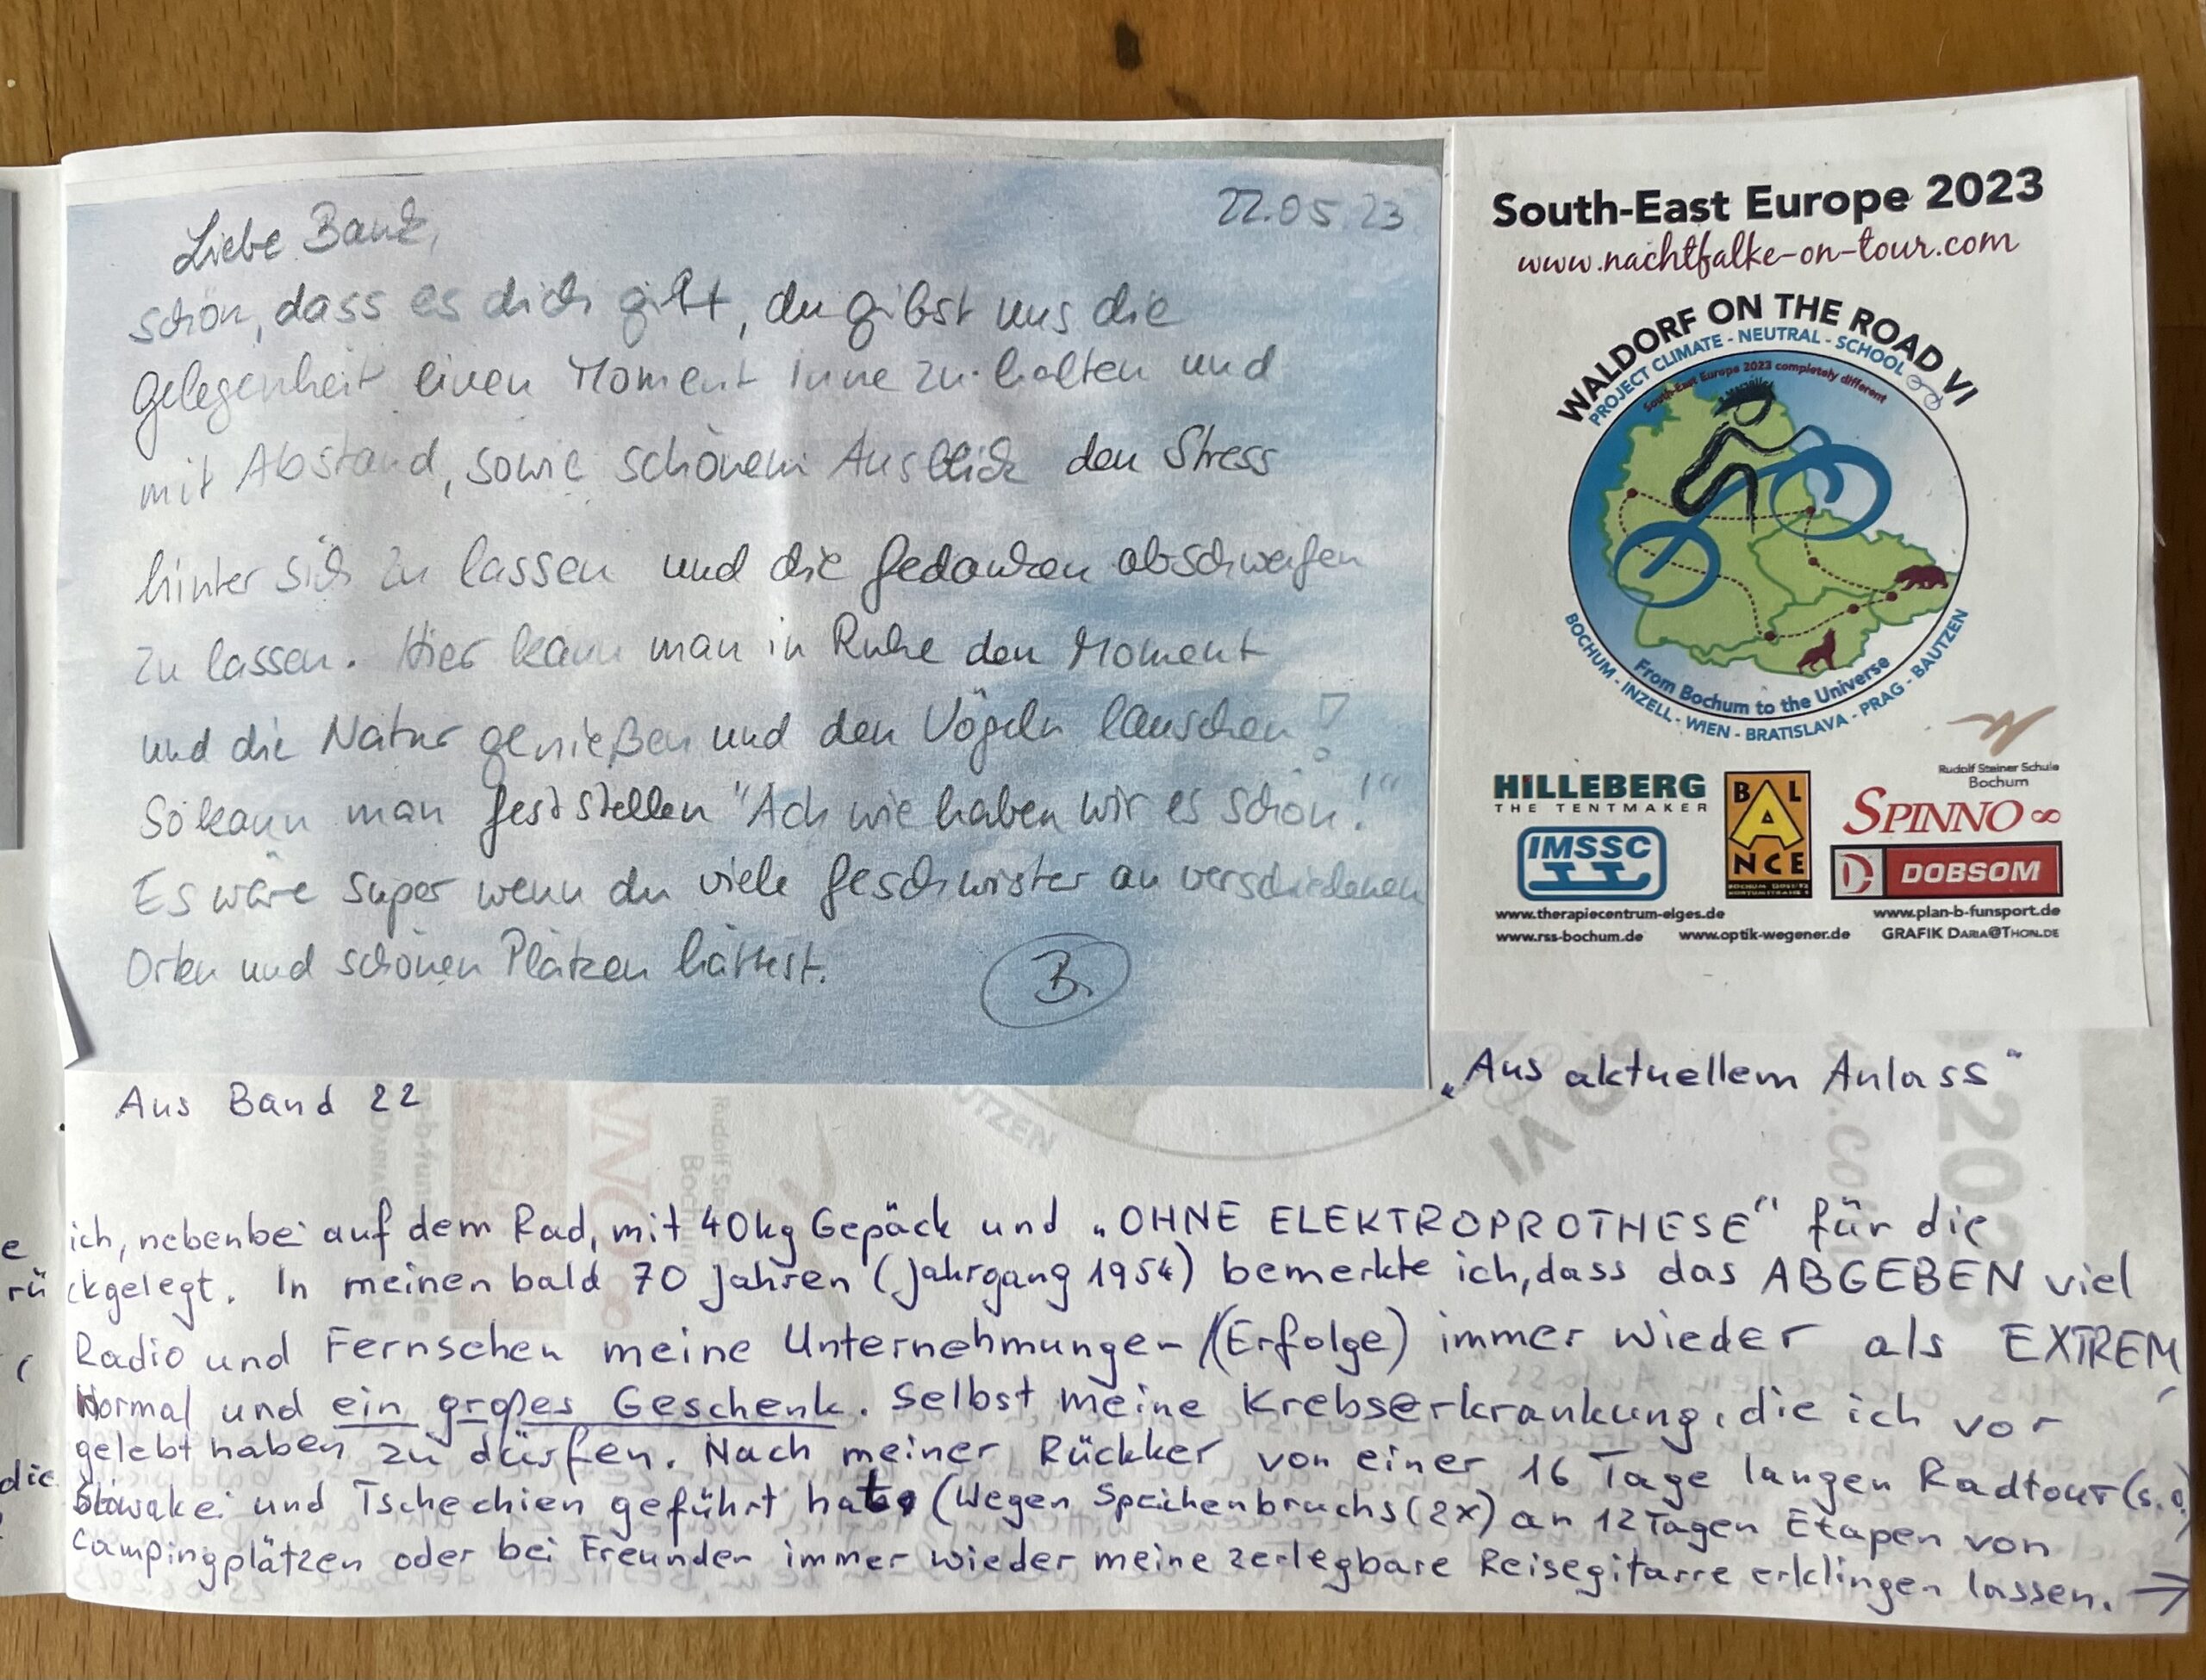 22.05.23
Liebe Bank,
schön, dass es dich gibt, du gibst uns die
Gelegenheit einen Moment inne zu halten und
mit Abstand, sowie schönem Ausblick den Stress
hinter sich zu lassen und die Gedanken abschweifen
zu lassen. Hier kann man in Ruhe den Moment
und die Natur genießen und den Vögeln lauschen!
So kann man feststellen "Ach wie haben wir es schön!"
Es wäre super wenn du viele Geschwister an verschiedenen
Orten und schönen Plätzen hättest.
B.
Aus Band 22
South-East Europe 2023
www.nachtfalke-on-tour.com
WALDORF ON THE ROAD VI
PROJECT CLIMATE - NEUTRAL - SCHOOL
South-East Europe 2023 completely different
From Bochum to the Universe
BOCHUM - INZELL - WIEN - BRATISLAVA - PRAG - BAUTZEN
Rudolf Steiner Schule
Bochum
HILLEBERG
THE TENTMAKER
BALANCE
SPINNO ∞
IMSSC
DOBSOM
www.therapiecentrum-elges.de
www.plan-b-funsport.de
www.rss-bochum.de
www.optik-wegener.de
GRAFIK DARIA@THON.DE
„Aus aktuellem Anlass"
e ich, nebenbei auf dem Rad, mit 40kg Gepäck und „OHNE ELEKTROPROTHESE" für die
rückgelegt. In meinen bald 70 Jahren (Jahrgang 1954) bemerkte ich, dass das ABGEBEN viel
Radio und Fernsehen meine Unternehmungen /(Erfolge) immer wieder als EXTREM
Normal und ein großes Geschenk. Selbst meine Krebserkrankung, die ich vor
gelebt haben zu dürfen. Nach meiner Rückker von einer 16 Tage langen Radtour (s.o.)
die Slowakei und Tschechien geführt hat, (Wegen Speichenbruchs (2x) an 12 Tagen Etapen von
Campingplätzen oder bei Freunden immer wieder meine zerlegbare Reisegitarre erklingen lassen. →